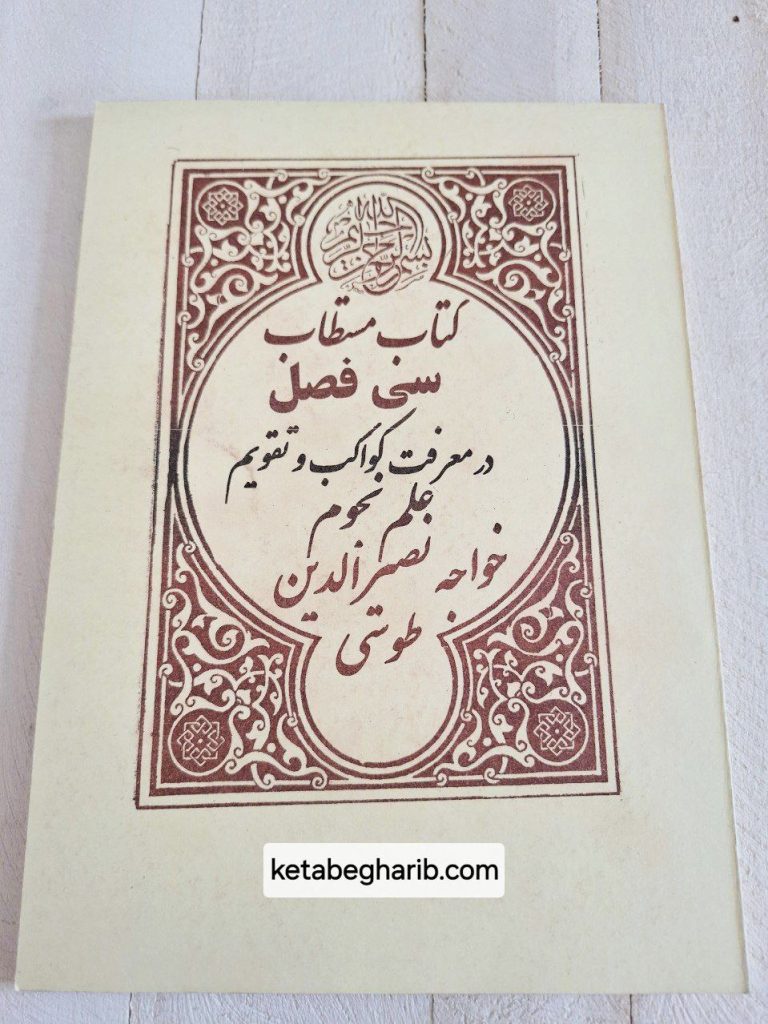 بسم الله الرحمن الرحیم
کتاب مستطاب
سی فصل
در معرفت کواکب و تقویم
علم نجوم
خواجه نصیرالدین
طوسی
ketabegharib.com